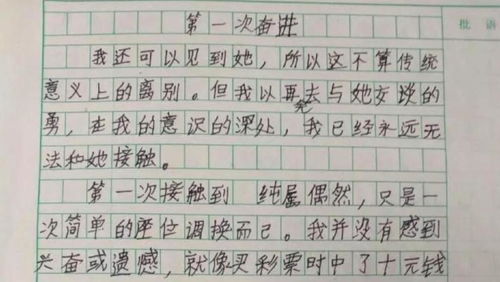 第一次奋进
批语
我还可以见到她，所以这不算传统
意义上的离别。但我以再去与她交谈的
勇，在我的意识的深处，我已经永远无
法和她接触。
第一次接触到 纯属偶然，只是一
次简单的座位调换而已。我并没有感到
兴奋或遗憾，就像买彩票时中了十元钱